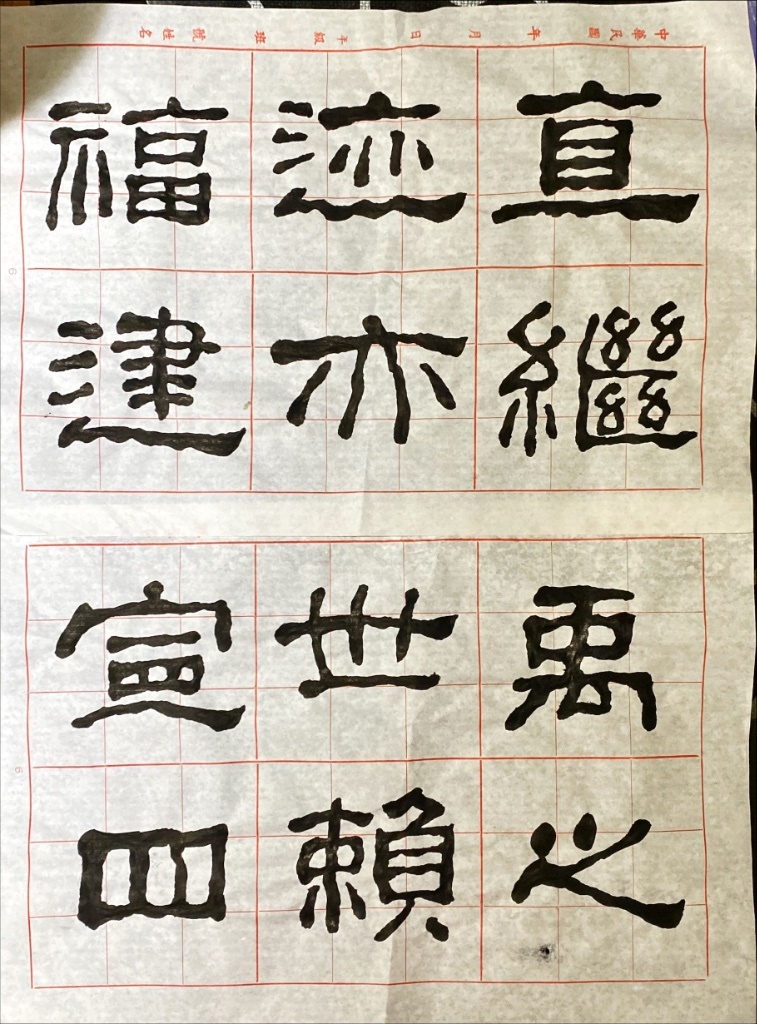 中華民國 年 月 日 年級 班 號 姓名
直繼禹之
迹亦世賴
福建宣四